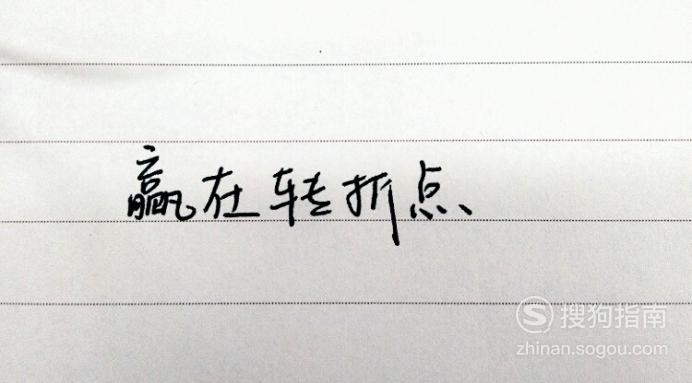 赢在转折点
搜狗指南
zhinan.sogou.com